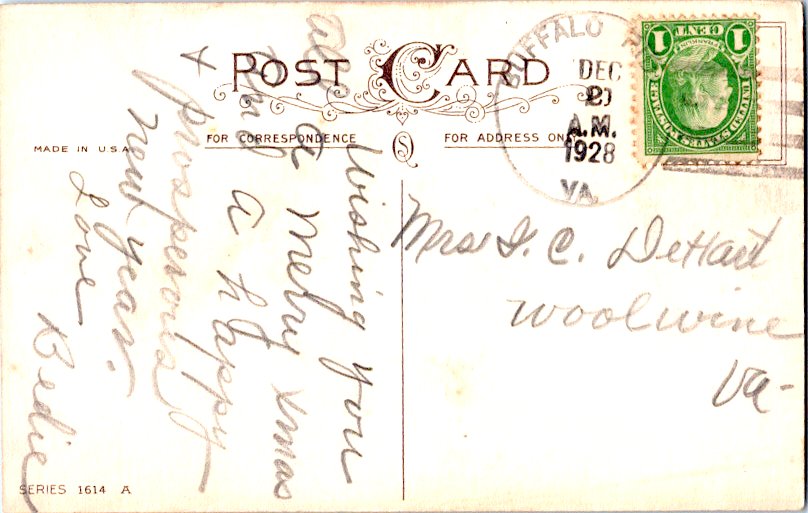 POST CARD
FOR CORRESPONDENCE
FOR ADDRESS ON
MADE IN U.S.A.
BUFFALO
DEC
20
A.M.
1928
VA.
1 CENT 1
FRANKLIN
UNITED STATES POSTAGE
Wishing you
all a Merry Xmas
and a happy
& prosperous
new year.
Love
Bedie
Mrs I. C. DeHart
Woolwine
Va-
SERIES 1614 A